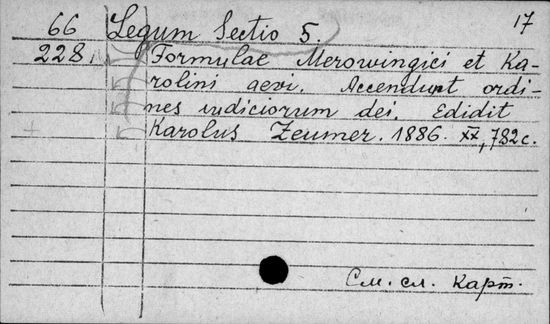 17
66 Legum Sectio 5.
228. Formulae Merowingici et Ka-
rolini aevi. Accendunt ordi-
nes iudiciorum dei. Edidit
Karolus Zeumer. 1886. XX, 782 с.
См. сл. карт.